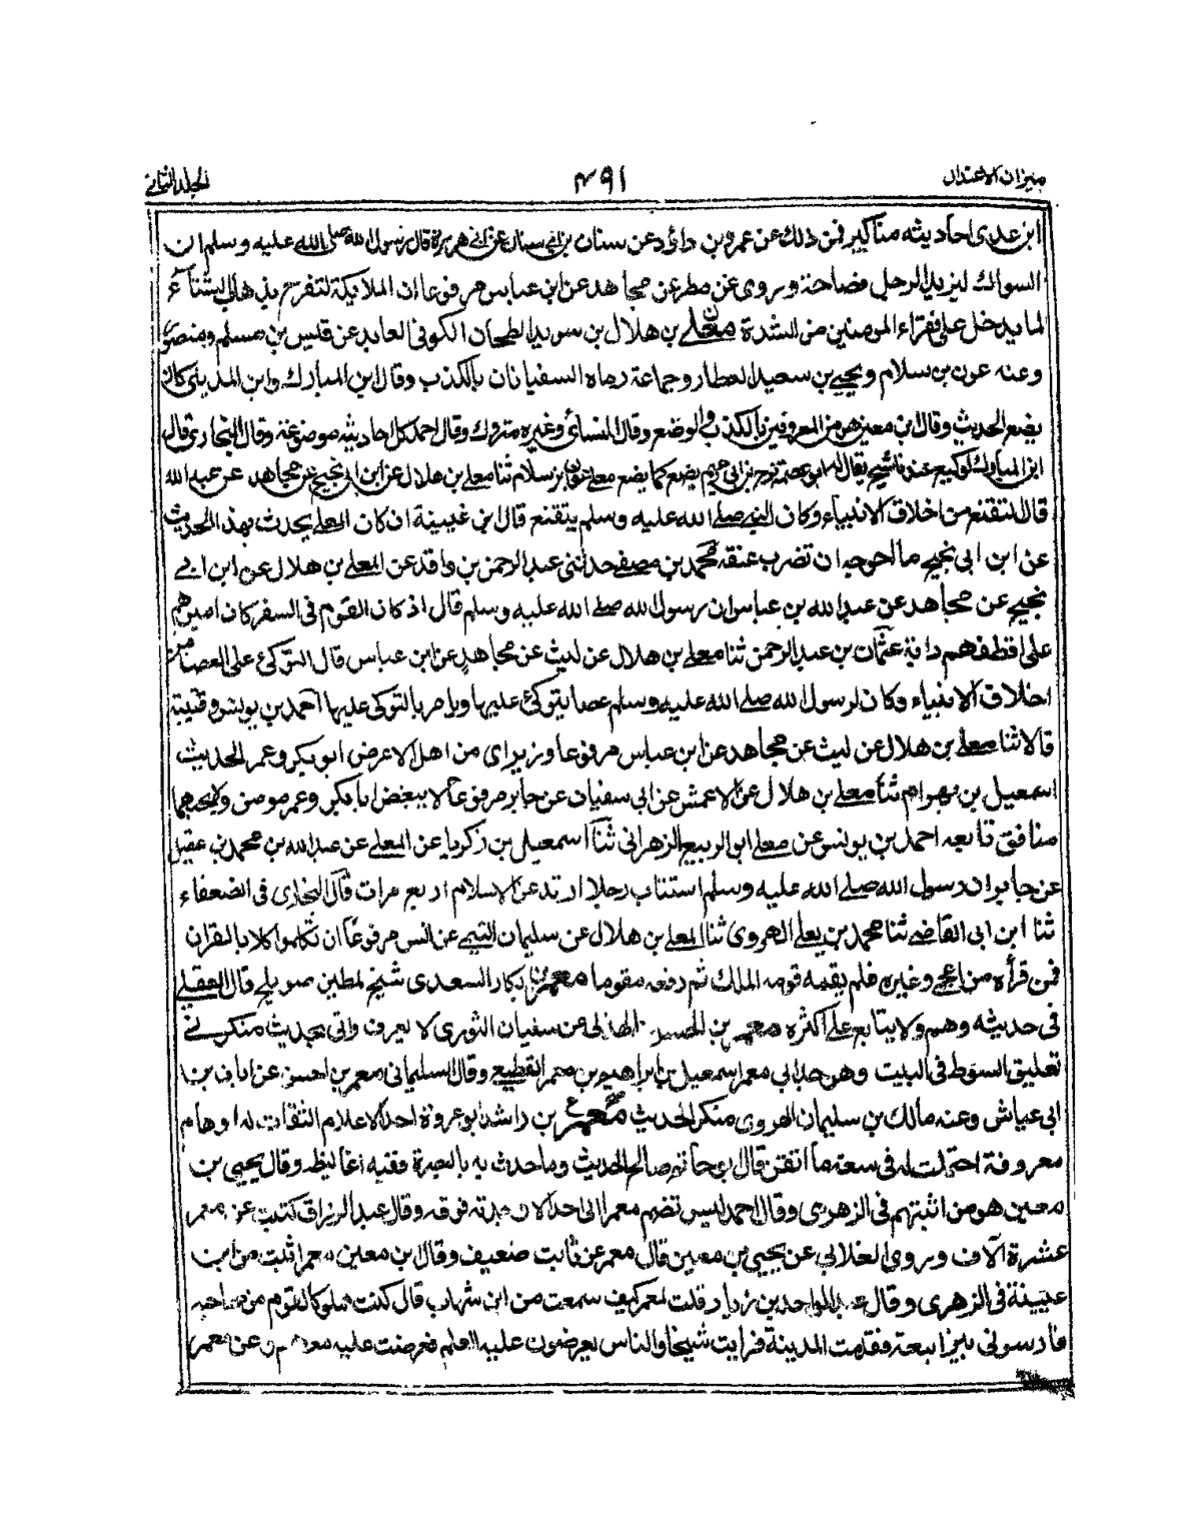 ميزان الاعتدال
٤٩١
الجلد الثاني
ابن عدى احاديثه مناكير فمن ذلك عن عمرو بن داؤد عن سنان بن ابي سنان عن ابي هريرة قال رسول الله صلى الله عليه وسلم ان
السواك ليزيد الرجل فصاحة وروى عن مطر عن مجاهد عن ابن عباس مرفوعا ان الملايكة لتفرح بذهاب الشتآء
لما يدخل على فقراء المومنين من الشدة معلى بن هلال بن سويد الطحان الكوفى العابد عن قيس بن مسلم ومنصور
وعنه عون بن سلام ويحيى بن سعيد العطار وجماعة رماه السفيانان بالكذب وقال ابن المبارك وابن المدينى كان
يضع الحديث وقال ابن معين هو من المعروفين بالكذب والوضع وقال النسائى وغيره متروك وقال احمد كل احاديثه موضوعة وقال البخارى قال
ابن المبارك لوكيع عندنا شيخ يقال له ابو عصمة نوح بن ابى مريم يضع كما يضع معلى عون بن سلام ثنا معلى بن هلال عن ابن ابى نجيح عن مجاهد عن عبد الله
قال التقنع من اخلاق الانبياء وكان النبى صلى الله عليه وسلم يتقنع قال ابن عيينة ان كان المعلى يحدث بهذا الحديث
عن ابن ابى نجيح ما احوجه ان تضرب عنقه محمد بن مصفى حدثنى عبد الرحمن بن واقد عن المعلى بن هلال عن ابن ابى
نجيح عن مجاهد عن عبد الله بن عباس ان رسول الله صلى الله عليه وسلم قال اذ كان القوم فى السفر كان اميرهم
على اقطفهم دابة عثمان بن عبد الرحمن ثنا معلى بن هلال عن ليث عن مجاهد عن ابن عباس قال التوكئ على العصا من
اخلاق الانبياء وكان لرسول الله صلى الله عليه وسلم عصا يتوكئ عليها ويامر بالتوكى عليها احمد بن يونس وقتيبة
قالا ثنا معلى بن هلال عن ليث عن مجاهد عن ابن عباس مرفوعا وزيراى من اهل الارض ابو بكر وعمر الحديث
اسمعيل بن بهرام ثنا معلى بن هلال عن الاعمش عن ابى سفيان عن جابر مرفوعا لا يبغض ابا بكر وعمر مومن ولا يحبهما
منافق تابعه احمد بن يونس عن معلى ابو الربيع الزهرانى ثنا اسمعيل بن زكريا عن المعلى عن عبد الله بن محمد بن عقيل
عن جابر ان رسول الله صلى الله عليه وسلم استتاب رجلا ارتد عن الاسلام اربع مرات قال البخارى فى الضعفاء
ثنا ابن ابى القاضى ثنا محمد بن يعلى الهروى ثنا المعلى بن هلال عن سليمان التيمى عن انس مرفوعا ان تكلموا كلا بالقران
فمن قرأه من اعجمى وغيره فلم يقمه قومه الملك ثم رفعه مقوما معمر بن بكار السعدى شيخ لمطين صويلح قال العقيلى
فى حديثه وهم ولا يتابع على اكثره معمر بن الحسن الهذلى عن سفيان الثورى لا يعرف واتى بحديث منكر فى
تعليق السوط فى البيت وهو جد ابى معمر اسمعيل بن ابراهيم بن معمر القطيعى وقال السليمانى معمر بن الحسن عن ابان بن
ابى عياش وعنه مالك بن سليمان الهروى منكر الحديث معمر بن راشد ابو عروة احد الاعلام الثقات له اوهام
معروفة احتملت له فى سعة ما اتقن قال ابو حاتم صالح الحديث وما حدث به بالبصرة ففيه اغاليظ وقال يحيى بن
معين هو من اثبتهم فى الزهرى وقال احمد ليس تضم معمرا الى احد الا وجدته فوقه وقال عبد الرزاق كتبت عن معمر
عشرة الآف وروى الغلابى عن يحيى بن معين قال معمر عن ثابت ضعيف وقال ابن معين معمر اثبت من ابن
عيينة فى الزهرى وقال عبد الواحد بن زياد قلت لمعمر كيف سمعت من ابن شهاب قال كنت مملوكا لقوم من طاحية
فارسونى ببز ابيعه فقدمت المدينة فرايت شيخا والناس يعرضون عليه العلم فعرضت عليه معهم وعن معمر